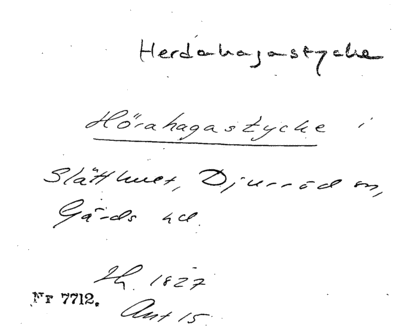 Herdahagastycke
Hörahagastycke i
Slätthult, Djurröd sn,
Gärds hd.
Lh. 1827
Nr 7712.
Akt 15.